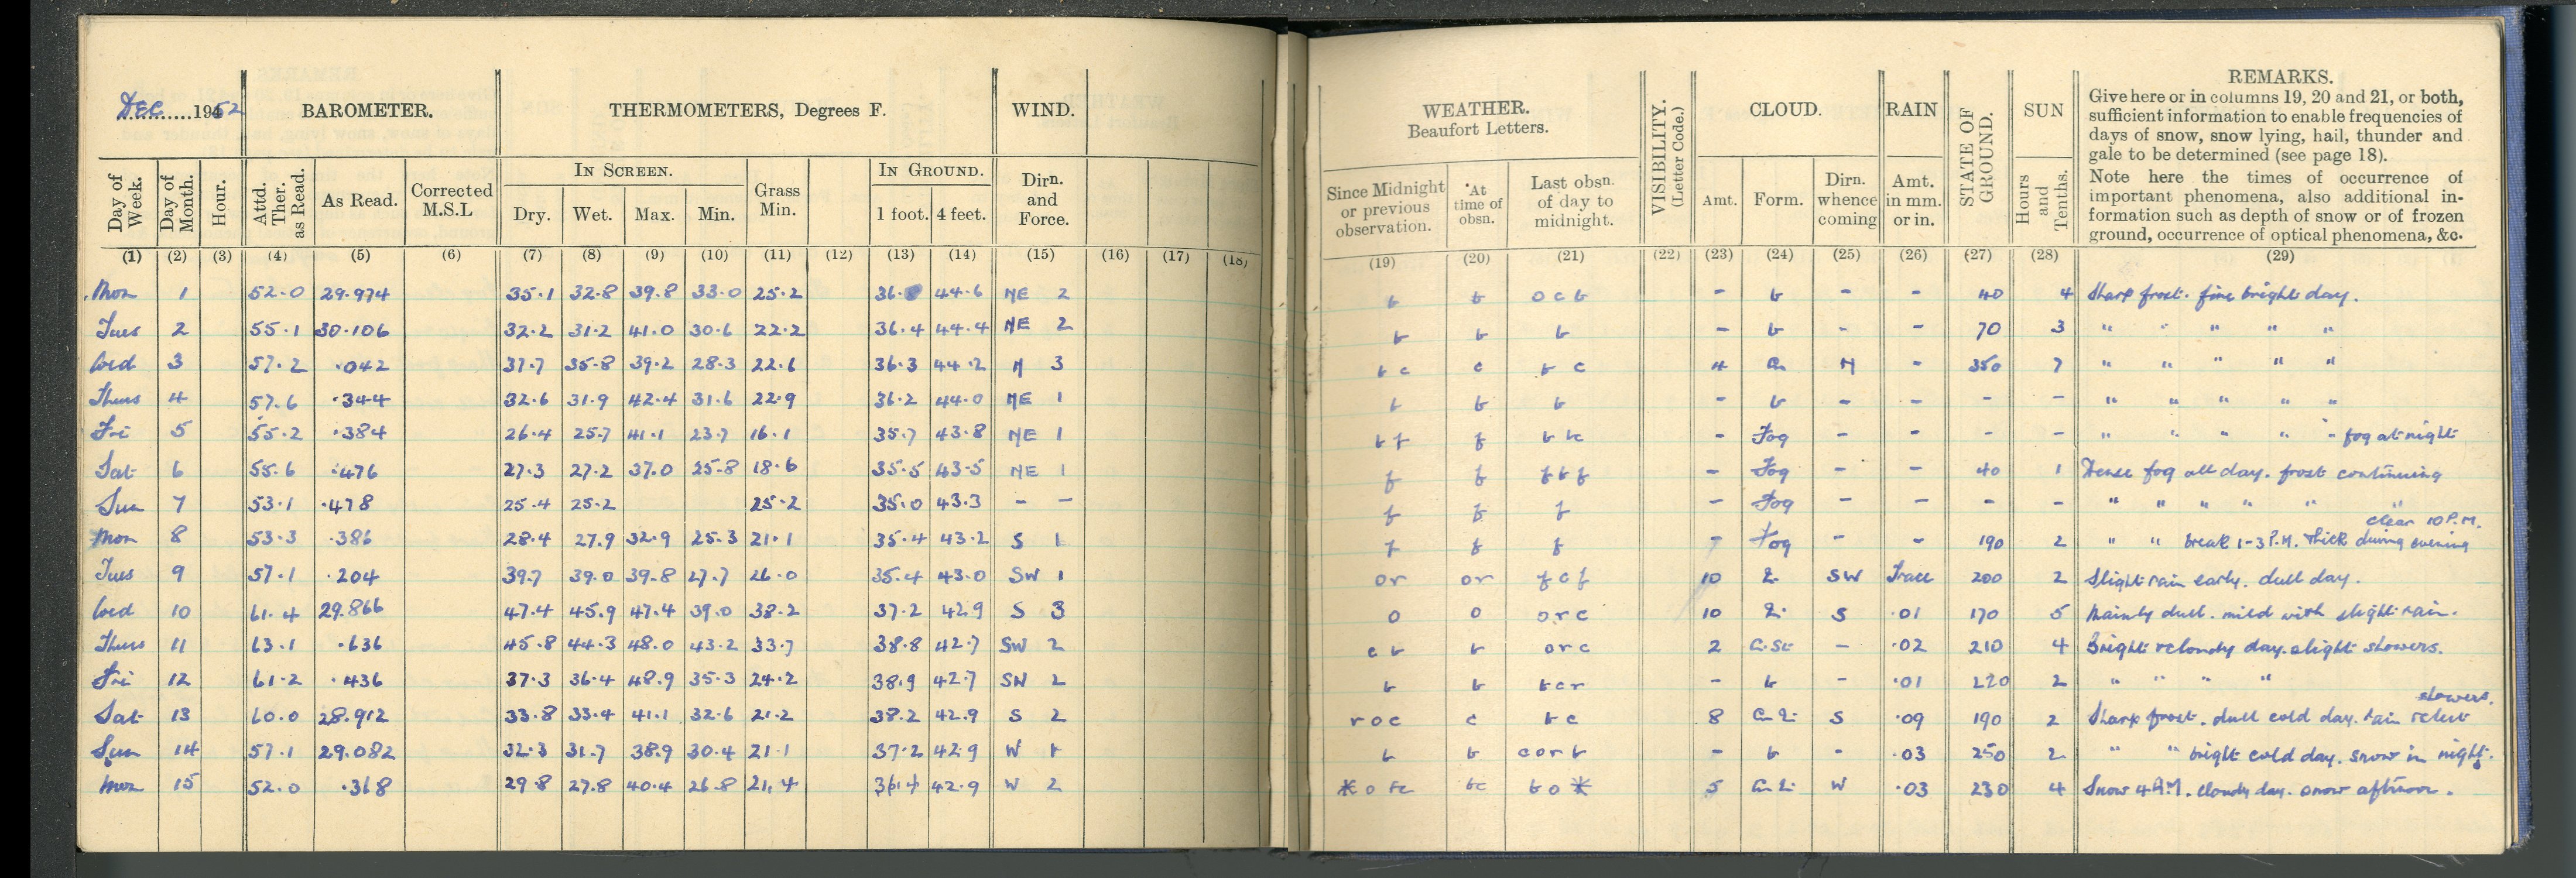 DEC 1952 BAROMETER. THERMOMETERS, Degrees F. WIND.
Day of Week. Day of Month. Hour. Attd. Ther. as Read. As Read. Corrected M.S.L IN SCREEN. Dry. Wet. Max. Min. Grass Min. IN GROUND. 1 foot. 4 feet. Dirn. and Force.
(1) (2) (3) (4) (5) (6) (7) (8) (9) (10) (11) (12) (13) (14) (15) (16) (17) (18)
Mon 1 52.0 29.974 35.1 32.8 39.8 33.0 25.2 36. 44.6 NE 2
Tues 2 55.1 30.106 32.2 31.2 41.0 30.6 22.2 36.4 44.4 NE 2
Wed 3 57.2 .042 37.7 35.8 39.2 28.3 22.6 36.3 44.2 N 3
Thurs 4 57.6 .344 32.6 31.9 42.4 31.6 22.9 36.2 44.0 NE 1
Fri 5 55.2 .384 26.4 25.7 41.1 23.7 16.1 35.7 43.8 NE 1
Sat 6 55.6 .476 27.3 27.2 37.0 25.8 18.6 35.5 43.5 NE 1
Sun 7 53.1 .478 25.4 25.2 25.2 35.0 43.3 - -
Mon 8 53.3 .386 28.4 27.9 32.9 25.3 21.1 35.4 43.2 S 1
Tues 9 57.1 .204 39.7 39.0 39.8 27.7 26.0 35.4 43.0 SW 1
Wed 10 61.4 29.866 47.4 45.9 47.4 39.0 38.2 37.2 42.9 S 3
Thurs 11 63.1 .636 45.8 44.3 48.0 43.2 33.7 38.8 42.7 SW 2
Fri 12 61.2 .436 37.3 36.4 48.9 35.3 24.2 38.9 42.7 SW 2
Sat 13 60.0 28.912 33.8 33.4 41.1 32.6 21.2 38.2 42.9 S 2
Sun 14 57.1 29.082 32.3 31.7 38.9 30.4 21.1 37.2 42.9 W 1
Mon 15 52.0 .368 29.8 27.8 40.4 26.8 21.4 36.4 42.9 W 2
WEATHER. Beaufort Letters. VISIBILITY. (Letter Code.) CLOUD. RAIN STATE OF GROUND. SUN REMARKS.
Give here or in columns 19, 20 and 21, or both,
sufficient information to enable frequencies of
days of snow, snow lying, hail, thunder and
gale to be determined (see page 18).
Note here the times of occurrence of
important phenomena, also additional in-
formation such as depth of snow or of frozen
ground, occurrence of optical phenomena, &c.
Since Midnight or previous observation. At time of obsn. Last obsn. of day to midnight. Amt. Form. Dirn. whence coming Amt. in mm. or in. Hours and Tenths.
(19) (20) (21) (22) (23) (24) (25) (26) (27) (28) (29)
b b ocb - b - - 40 4 Sharp frost. fine bright day.
b b b - b - - 70 3 " " " " "
bc c bc 4 N - 350 7 " " " " "
b b b - b - - - - " " " " "
bf f - Fog - - - - " " " " " fog at night
f f fbf - Fog - - 40 1 Dense fog all day. frost continuing
f f f - Fog - - - - " " " " " "
clear 10 P.M.
f f f - Fog - - 190 2 " " break 1-3 P.M. thick during evening
or or fcf 10 SW Trace 200 2 Slight rain early. dull day.
o o orc 10 S .01 170 5 Mainly dull. mild with slight rain.
cb b orc 2 - .02 210 4 Bright cloudy day. slight showers.
b b bcr - b - .01 220 2 " " " "
showers.
roc c bc 8 S .09 190 2 Sharp frost. dull cold day. rain
b b corb - b - .03 250 2 " " bright cold day. snow in night.
bc bo* 5 W .03 230 4 Snow 4 AM. cloudy day. snow afternoon.